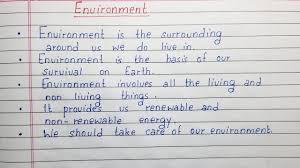 Environment
• Environment is the surrounding
around us we do live in.
• Environment is the basis of our
survival on Earth.
• Environment involves all the living and
non living things.
• It provides us renewable and
non-renewable energy.
• We should take care of our environment.